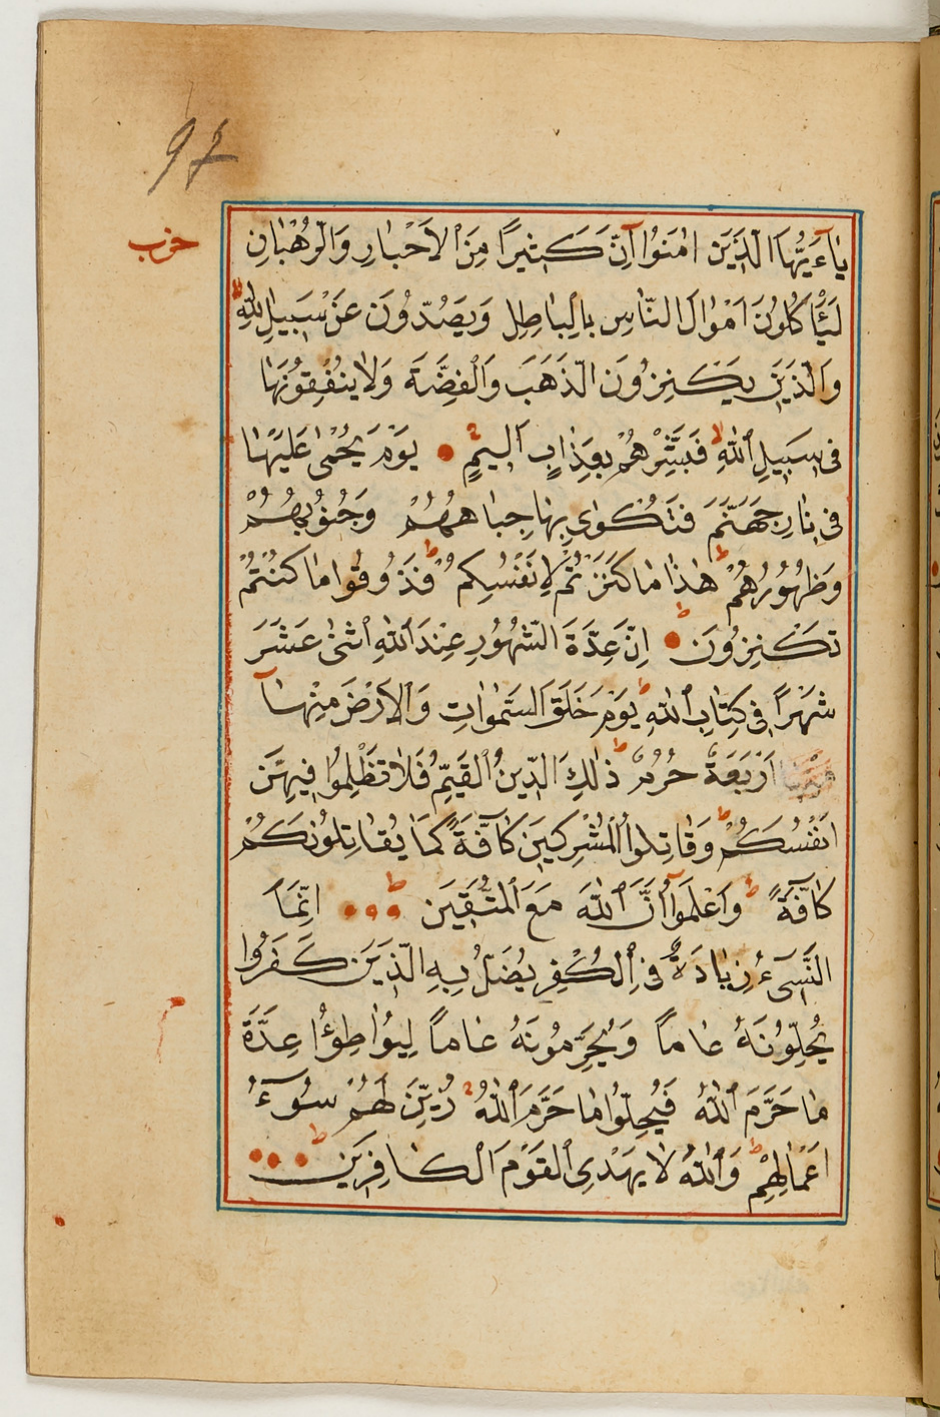 97
حزب
يٰٓاَيُّهَا الَّذٖينَ اٰمَنُٓوا اِنَّ كَثٖيرًا مِنَ الْاَحْبَارِ وَالرُّهْبَانِ
لَيَأْكُلُونَ اَمْوَالَ النَّاسِ بِالْبَاطِلِ وَيَصُدُّونَ عَنْ سَبٖيلِ اللّٰهِ ط
وَالَّذٖينَ يَكْنِزُونَ الذَّهَبَ وَالْفِضَّةَ وَلَا يُنْفِقُونَهَا
فٖى سَبٖيلِ اللّٰهِ لا فَبَشِّرْهُمْ بِعَذَابٍ اَلٖيمٍ يَوْمَ يُحْمٰى عَلَيْهَا
فٖى نَارِ جَهَنَّمَ فَتُكْوٰى بِهَا جِبَاهُهُمْ وَجُنُوبُهُمْ
وَظُهُورُهُمْ ط هٰذَا مَا كَنَزْتُمْ لِاَنْفُسِكُمْ ط فَذُوقُوا مَا كُنْتُمْ
تَكْنِزُونَ ط اِنَّ عِدَّةَ الشُّهُورِ عِنْدَ اللّٰهِ اثْنٰى عَشَرَ
شَهْرًا فٖى كِتَابِ اللّٰهِ يَوْمَ خَلَقَ السَّمٰوَاتِ وَالْاَرْضَ مِنْهَٓا
اَرْبَعَةٌ حُرُمٌ ط ذٰلِكَ الدّٖينُ الْقَيِّمُ فَلَا تَظْلِمُوا فٖيهِنَّ
اَنْفُسَكُمْ ط وَقَاتِلُوا الْمُشْرِكٖينَ كَٓافَّةً كَمَا يُقَاتِلُونَكُمْ
كَٓافَّةً ط وَاعْلَمُٓوا اَنَّ اللّٰهَ مَعَ الْمُتَّقٖينَ ط اِنَّمَا
النَّسٖٓىءُ زِيَادَةٌ فِى الْكُفْرِ يُضَلُّ بِهِ الَّذٖينَ كَفَرُوا
يُحِلُّونَهُ عَامًا وَيُحَرِّمُونَهُ عَامًا لِيُوَاطِؤُا عِدَّةَ
مَا حَرَّمَ اللّٰهُ فَيُحِلُّوا مَا حَرَّمَ اللّٰهُ زُيِّنَ لَهُمْ سُٓوءُ
اَعْمَالِهِمْ ط وَاللّٰهُ لَا يَهْدِى الْقَوْمَ الْكَافِرٖينَ ط